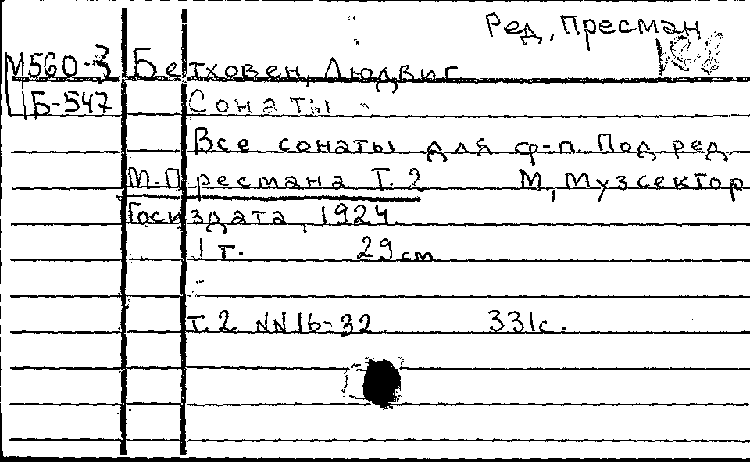 Ред. Пресман
М560-3 Бетховен, Людвиг
Б-547 Сонаты
Все сонаты для ф-п. Под ред.
М. Пресмана Т. 2 М, Музсектор
Госиздата, 1924
1 т. 29 см
Т. 2 NN 16-32 331 с.